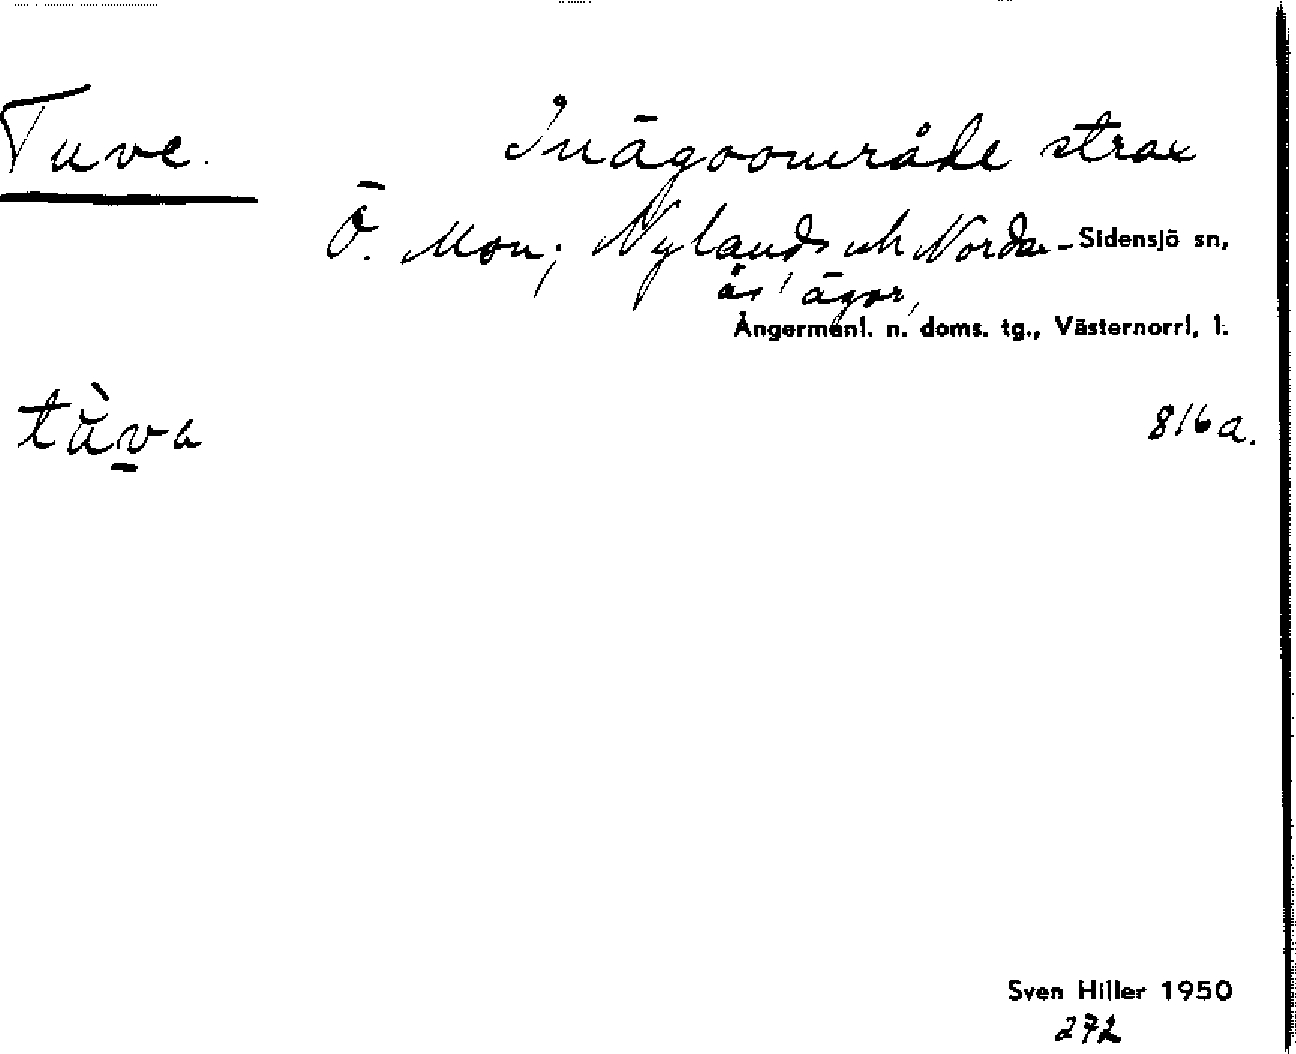 Tuve. Inägoområde strax
Ö. Mon; Nylands och Norda- Sidensjö sn,
ås' ägor,
Ångermanl. n. doms. tg., Västernorrl. l.
tù̀va 816a.
Sven Hiller 1950
272